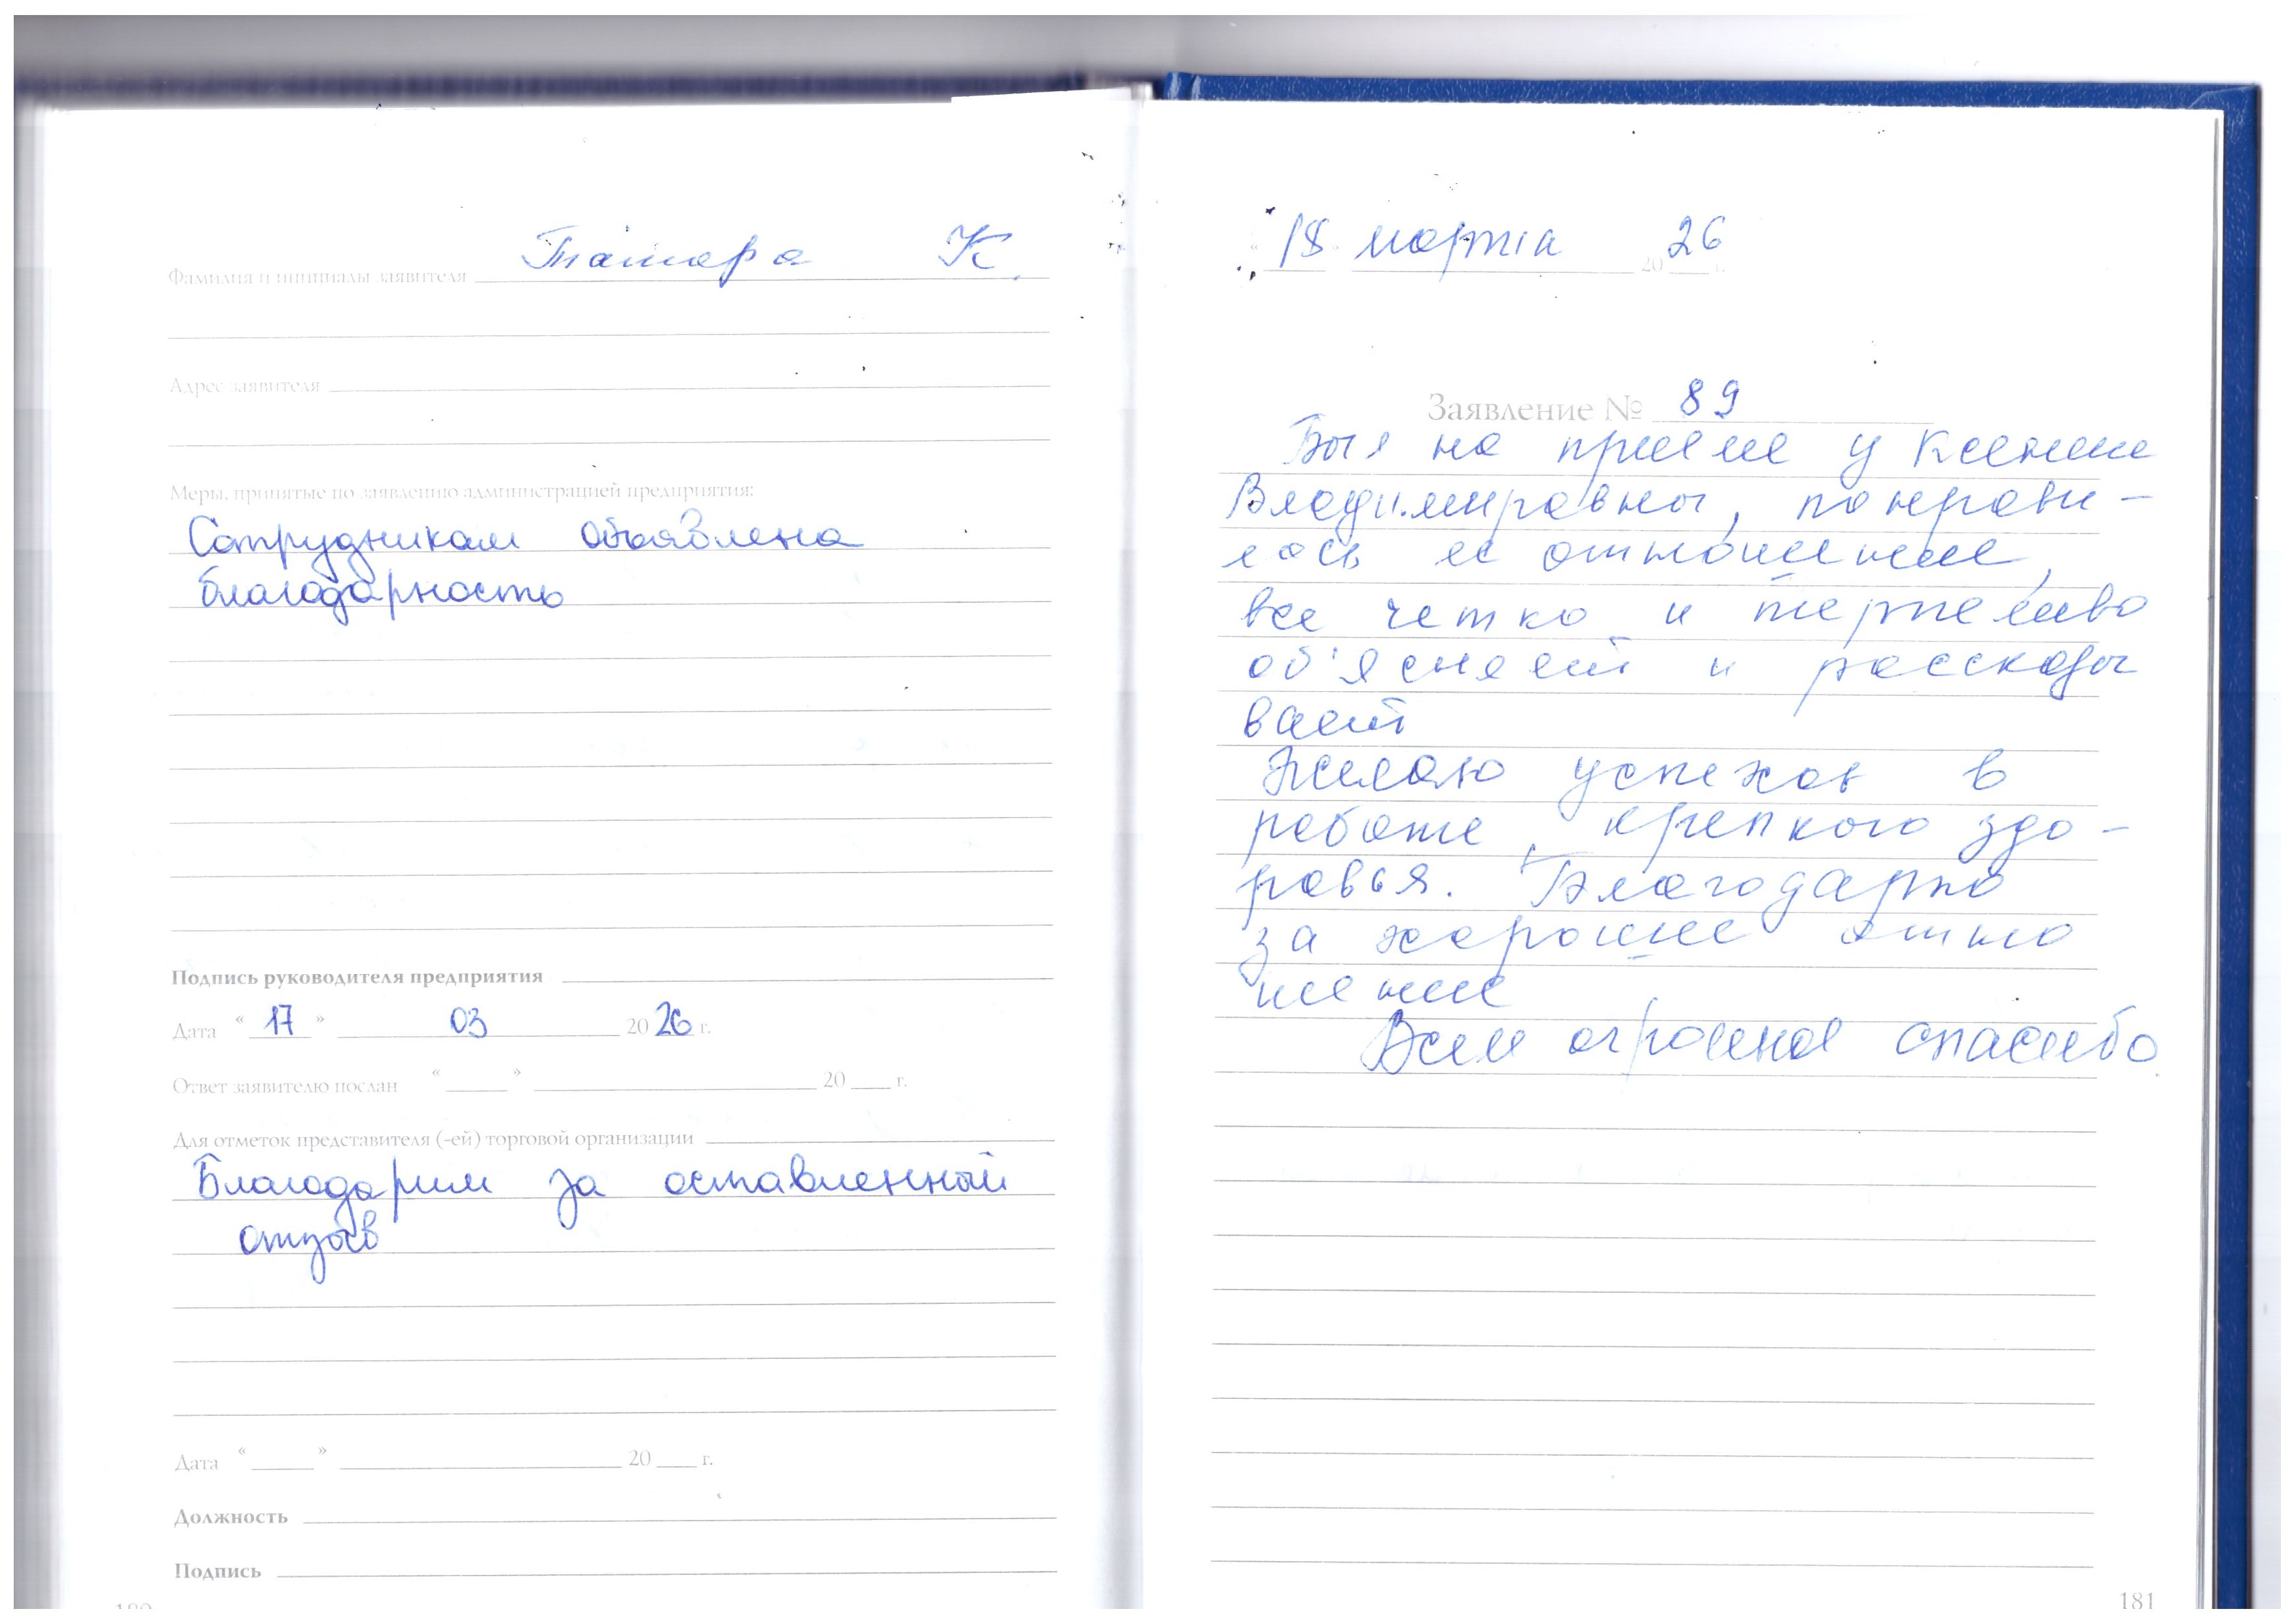 Фамилия и инициалы заявителя Татара К.
Адрес заявителя
Меры, принятые по заявлению администрацией предприятия:
Сотрудникам объявлена
благодарность
Подпись руководителя предприятия
Дата « 17 » 03 20 26 г.
Ответ заявителю послан « » 20 г.
Для отметок представителя (-ей) торговой организации
Благодарим за оставленный
отзыв
Дата « » 20 г.
Должность
Подпись
180
18 марта 20 26 г.
Заявление № 89
Был на приеме у Ксении
Владимировны, понрави-
лось ее отношение,
все четко и терпеливо
об'ясняет и рассказы
вает
Желаю успехов в
работе, крепкого здо-
ровья. Благодарю
за хорошее отно
шение
Всем огромное спасибо
181